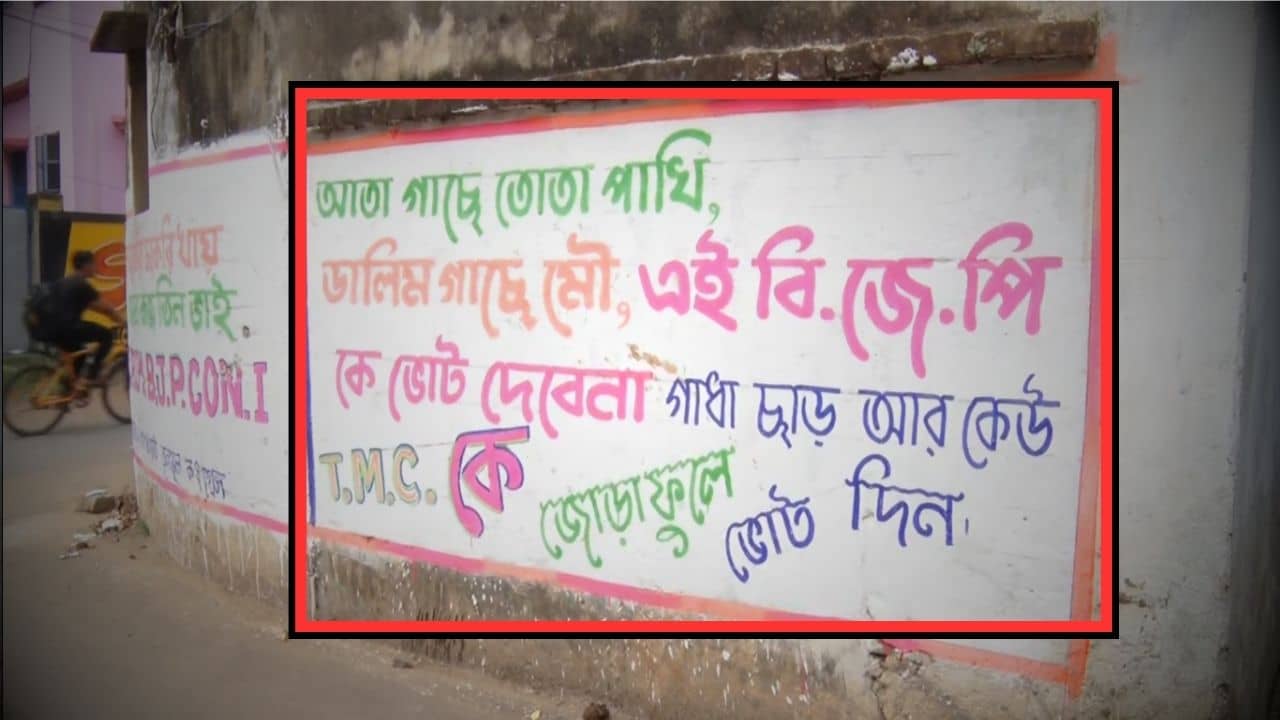 আতা গাছে তোতা পাখি,
ডালিম গাছে মৌ, এই বি.জে.পি
কে ভোট দেবেনা গাধা ছাড় আর কেউ
T.M.C. কে জোড়াফুলে ভোট দিন।
খায়
তিন ভাই.
B.J.P.CON.I